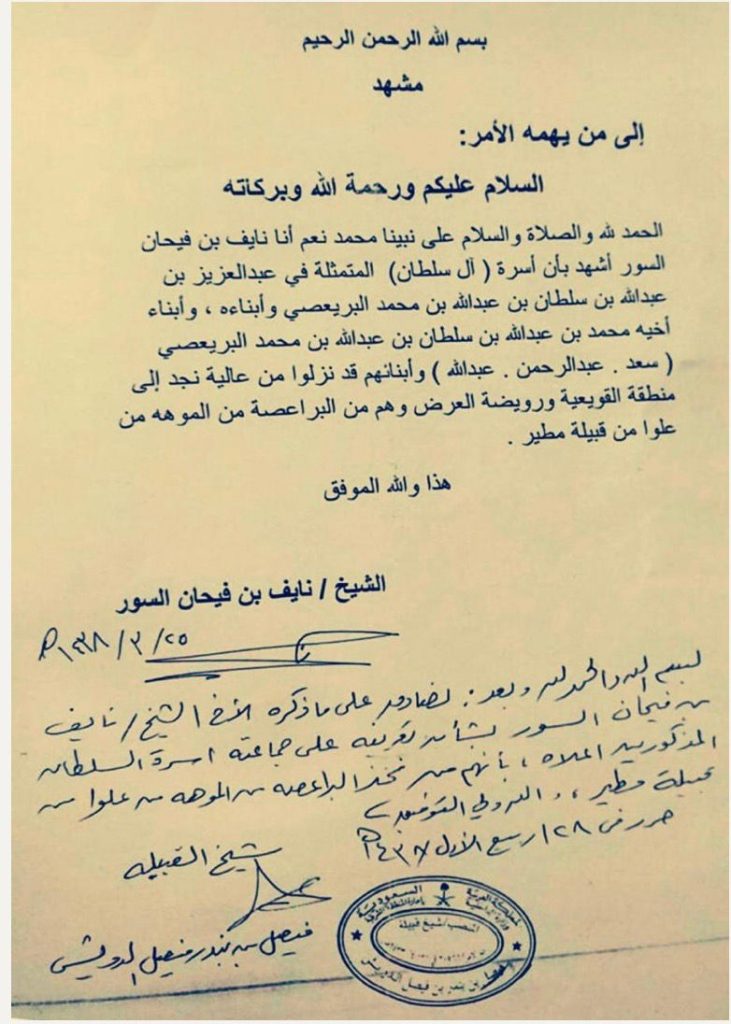 بسم الله الرحمن الرحيم
مشهد
إلى من يهمه الأمر:
السلام عليكم ورحمة الله وبركاته
الحمد لله والصلاة والسلام على نبينا محمد نعم أنا نايف بن فيحان
السور أشهد بأن أسرة ( آل سلطان) المتمثلة في عبدالعزيز بن
عبدالله بن سلطان بن عبدالله بن محمد البريعصي وأبناءه ، وأبناء
أخيه محمد بن عبدالله بن سلطان بن عبدالله بن محمد البريعصي
( سعد . عبدالرحمن . عبدالله ) وأبنائهم قد نزلوا من عالية نجد إلى
منطقة القويعية ورويضة العرض وهم من البراعصة من الموهه من
علوا من قبيلة مطير .
هذا والله الموفق
الشيخ / نايف بن فيحان السور
٢٥/٣/١٤٣٨هـ
بسم الله والحمد لله وبعد: نصادق على ما ذكره الأخ الشيخ / نايف
بن فيحان السور بشأن تعريفه على جماعته اسرة السلطان
المذكورين اعلاه ، بأنهم من فخذ البراعصه من الموهه من علوا من
قبيلة مطير ، والله ولي التوفيق
حرر في ٢٨ ربيع الأول ١٤٣٨هـ
شيخ القبيله
فيصل بن بندر فيصل الدويش
المملكة العربية السعودية
وزارة الداخلية
المنصب / شيخ قبيلة
فيصل بن بندر بن فيصل الدويش